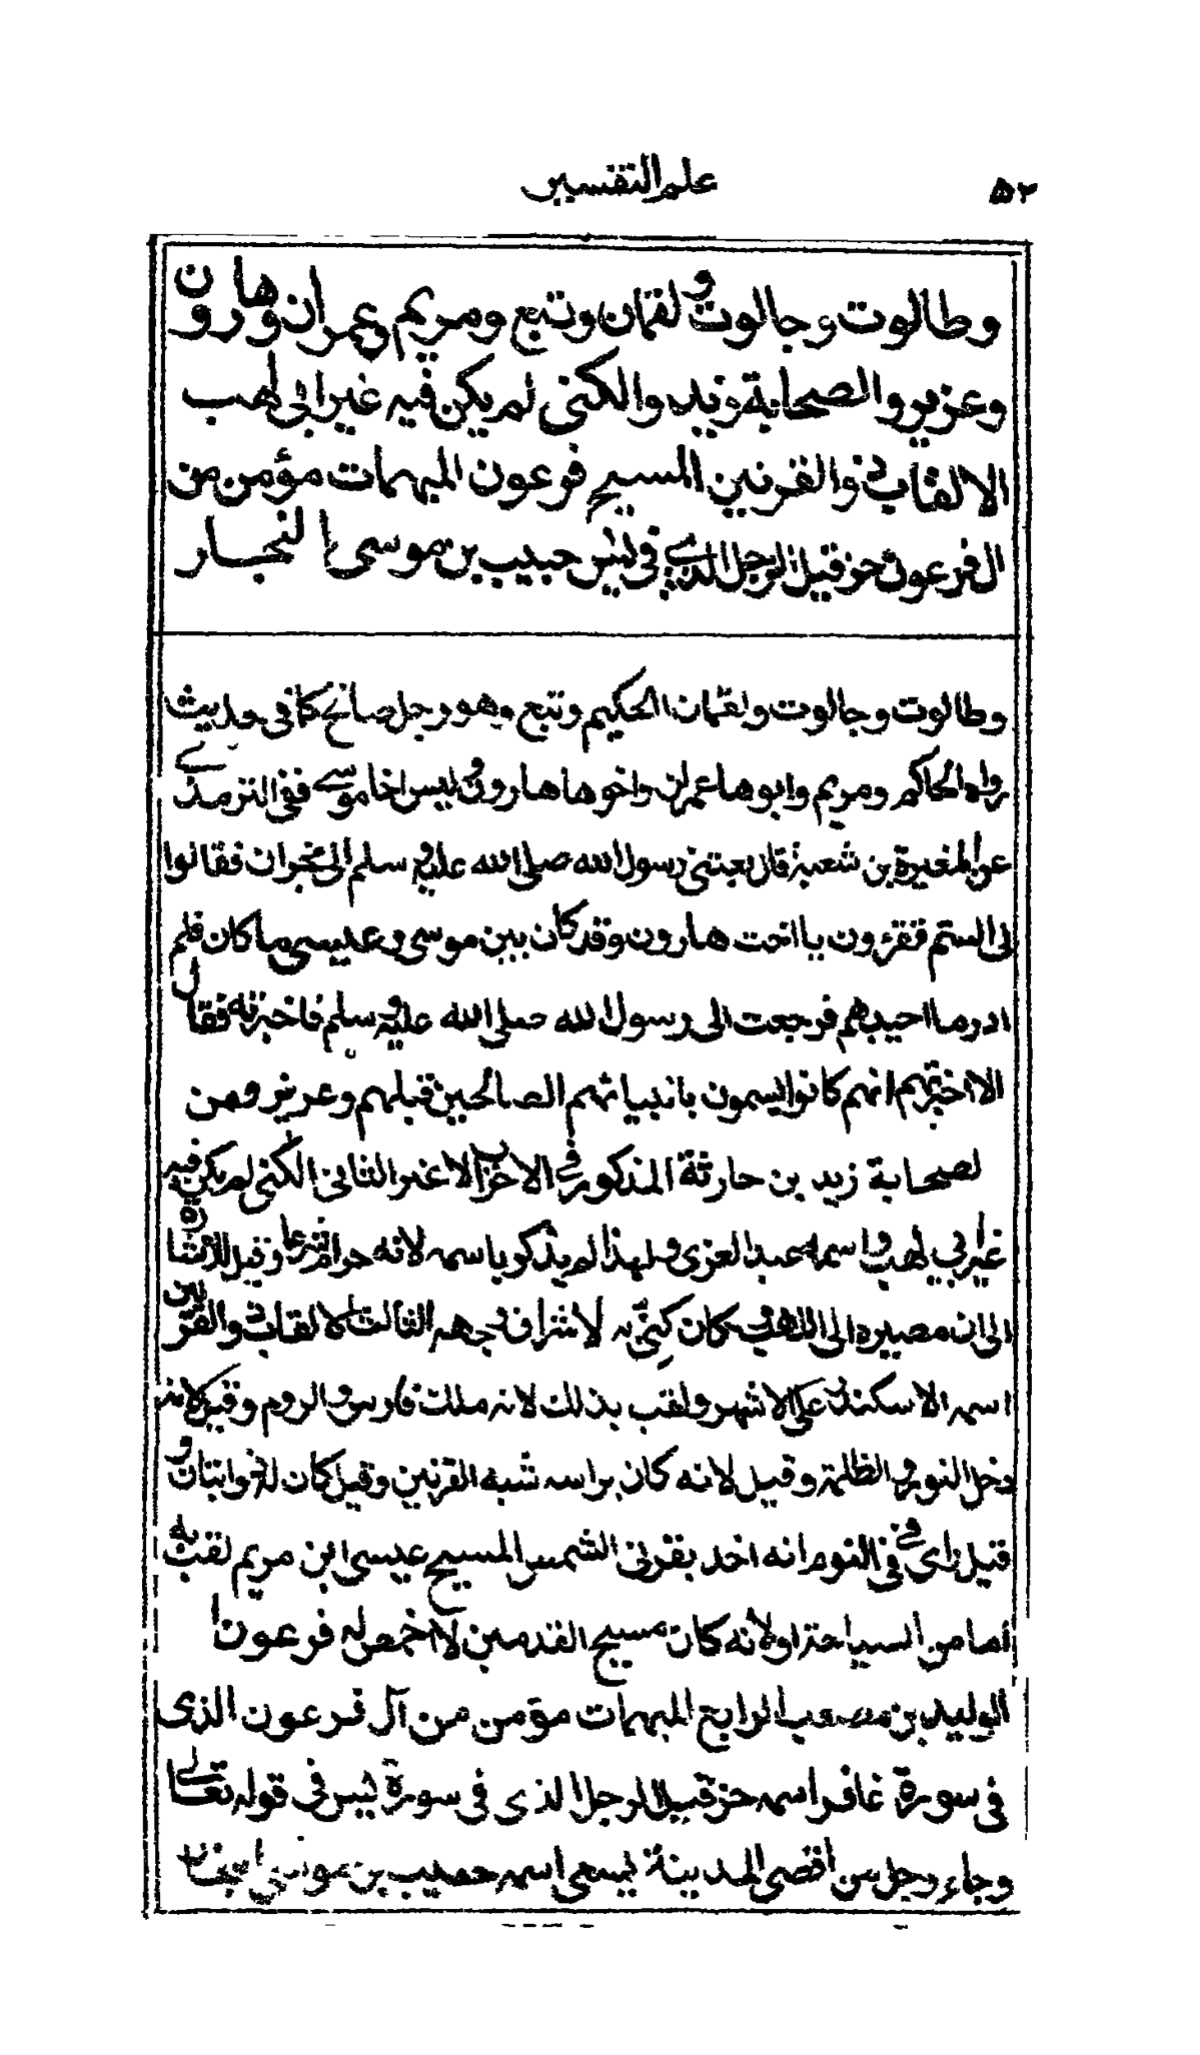 ٥٢
علم التفسير
وطالوت وجالوت ولقمان وتبع ومريم وعمران وهارون
وعزير والصحابة زيد والكنى لم يكن فيه غير ابى لهب
الالقاب ذو القرنين المسيح فرعون المبهمات مؤمن من
ال فرعون حزقيل الرجل الذي في يٰس حبيب بن موسى النجار
وطالوت وجالوت ولقمان الحكيم وتبع وهو رجل صالح كما في حديث
رواه الحاكم ومريم وابوها عمران واخوها هارون وليس اخا موسى ففي الترمذي
عن المغيرة بن شعبة قال بعثنى رسول الله صلى الله عليه وسلم الى نجران فقالوا
لى الستم تقرءون يا اخت هارون وقد كان بين موسى وعيسى ما كان فلم
ادر ما اجيبهم فرجعت الى رسول الله صلى الله عليه وسلم فاخبرته فقال
الا اخبرتهم انهم كانوا يسمون بانبيائهم الصالحين قبلهم وعزير ومن
لصحابة زيد بن حارثة المذكور في الاحزاب لا غير الثانى الكنى لم يكن فيه
غير ابي لهب واسمه عبد العزى ولهذا لم يذكر باسمه لانه حرام شرعا وقيل للاشارة
الى ان مصيره الى اللهب وكان كنى به لاشراف وجهه الثالث الالقاب ذو القرنين
اسمه الاسكندر على الاشهر ولقب بذلك لانه ملك فارس والروم وقيل لانه
دخل النور والظلمة وقيل لانه كان براسه شبه القرنين وقيل كان له ذوابتان و
قيل راى في النوم انه اخذ بقرنى الشمس المسيح عيسى ابن مريم لقب به
اما من السياحة او لانه كان مسيح القدمين لا اخمص له فرعون ا
لوليد بن مصعب الرابع المبهمات مؤمن من آل فرعون الذى
في سورة غافر اسمه حزقيل الرجل الذى في سورة يٰس في قوله تعالى
وجاء رجل من اقصى المدينة يسعى اسمه حبيب بن موسى